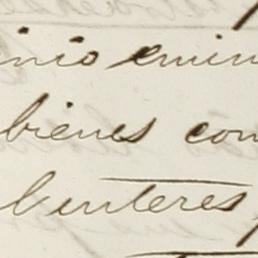 inio emin
bienes com
benteres,